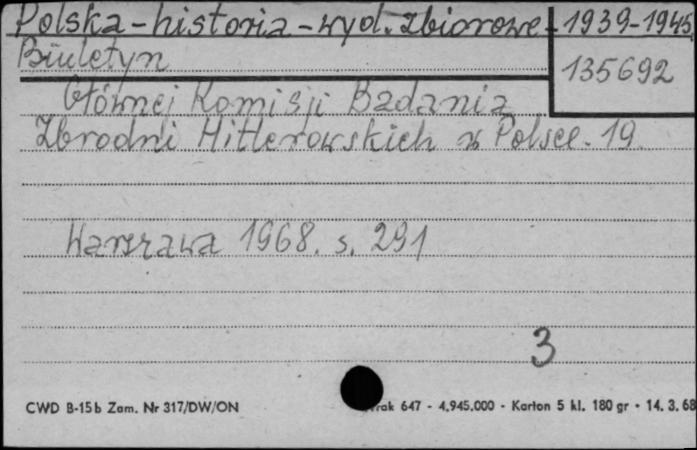 Polska - historia - wyd. zbiorowe - 1939-1945
Biuletyn
135692
Głównej Komisji Badania
Zbrodni Hitlerowskich w Polsce. 19
Warszawa 1968. s. 291
3
CWD B-15b Zam. Nr 317/DW/ON
647 - 4.945.000 - Karton 5 kl. 180 gr - 14. 3. 68